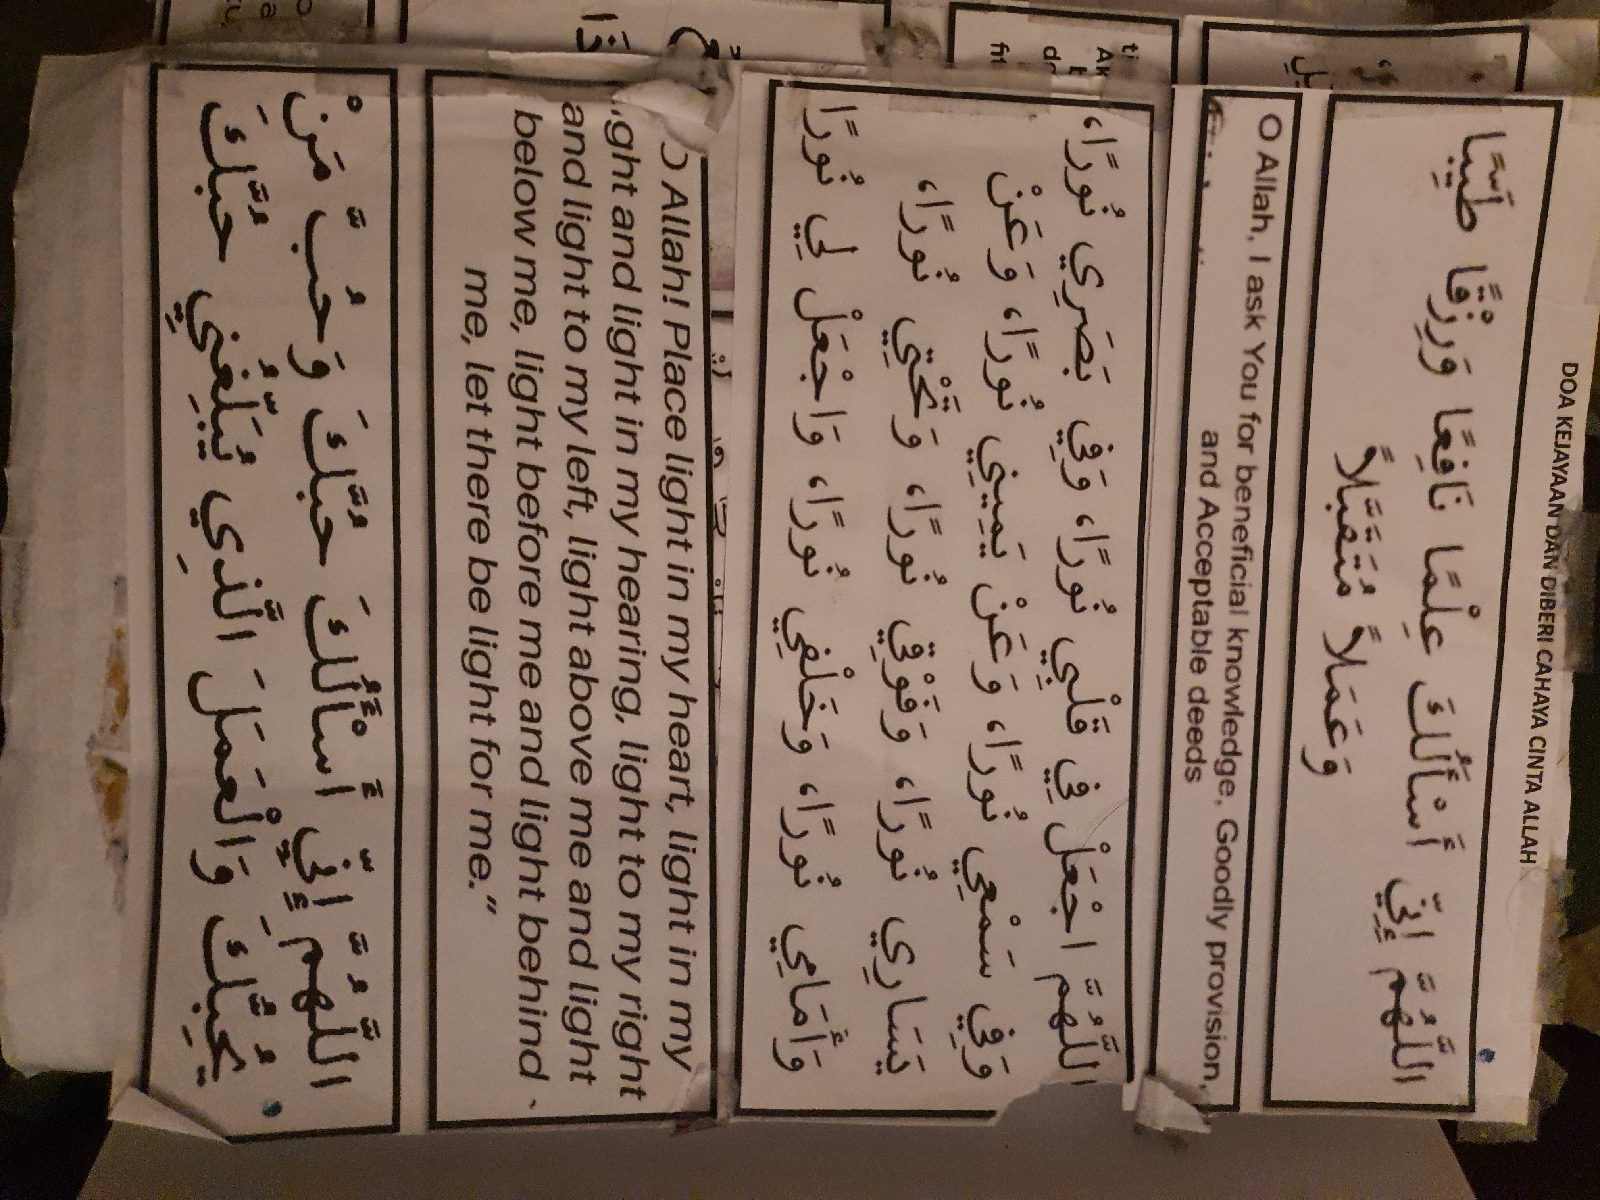 DOA KEJAYAAN DAN DIBERI CAHAYA CINTA ALLAH
اللَّهُمَّ إِنِّي أَسْأَلُكَ عِلْمًا نَافِعًا وَرِزْقًا طَيِّبًا
وَعَمَلًا مُتَقَبَّلًا
O Allah, I ask You for beneficial knowledge, Goodly provision,
and Acceptable deeds
اللَّهُمَّ اجْعَلْ فِي قَلْبِي نُورًا، وَفِي بَصَرِي نُورًا،
وَفِي سَمْعِي نُورًا، وَعَنْ يَمِينِي نُورًا، وَعَنْ
يَسَارِي نُورًا، وَفَوْقِي نُورًا، وَتَحْتِي نُورًا،
وَأَمَامِي نُورًا، وَخَلْفِي نُورًا، وَاجْعَلْ لِي نُورًا
O Allah! Place light in my heart, light in my
ght and light in my hearing, light to my right
and light to my left, light above me and light
below me, light before me and light behind
me, let there be light for me.”
اللَّهُمَّ إِنِّي أَسْأَلُكَ حُبَّكَ وَحُبَّ مَنْ
يُحِبُّكَ وَالْعَمَلَ الَّذِي يُبَلِّغُنِي حُبَّكَ